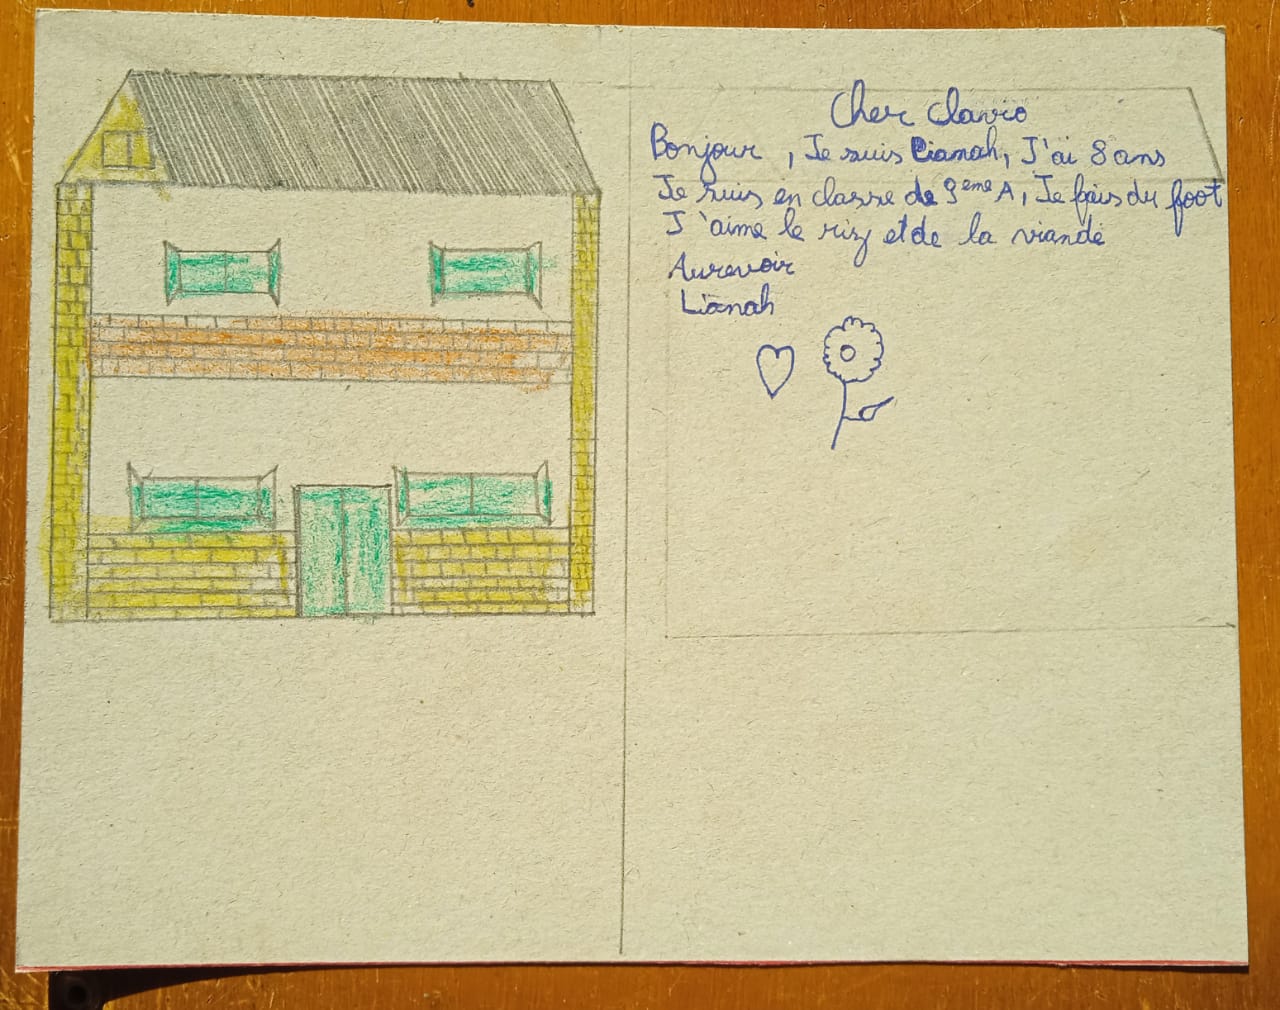 Cher clavio
Bonjour , Je suis Lianah, J'ai 8 ans
Je suis en classe de 9eme A, Je fais du foot
J'aime le riz et de la viande
Aurevoir
Lianah